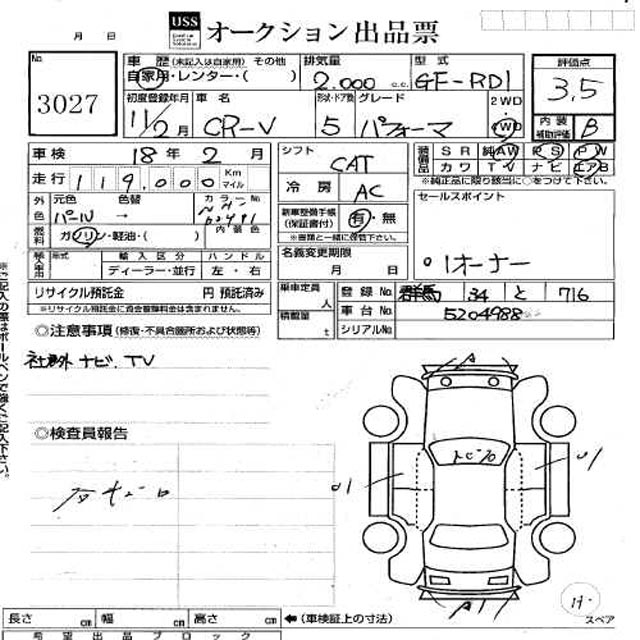 USS オークション出品票
月 日
No.
3027
車歴 (未記入は自家用) その他
自家用・レンター・( )
排気量
2.000 c.c.
型式
GF-RD1
評価点
3.5
初度登録年月
11/2月
車名
CR-V
形状・ドア数
5
グレード
パフォーマ
2WD
4WD
内装
補助評価
B
車検 18年 2月
走行 119,000 Km
マイル
シフト
CAT
冷房
AC
装備品
SR 純AW PS PW
カワ TV ナビ エアB
※純正品に限り該当に○をつけて下さい。
外色
元色 色替 カラーNo.
パール →
燃料
ガソリン・軽油・( )
内装色
新車整備手帳
(保証書付)
有・無
※書類と一緒に保管して下さい。
セールスポイント
○1オーナー
輸入車
形式
輸入区分
ハンドル
ディーラー・並行
左・右
名義変更期限
月 日
リサイクル預託金 円 預託済み
※リサイクル預託金に資金管理料金は含まれません。
乗車定員
人
積載量
t
登録No. 群馬 34 と 716
車台No. 5204988
シリアルNo.
◎注意事項 (修復・不具合箇所および状態等)
社外ナビ、TV
◎検査員報告
A
01
01
A1
長さ cm 幅 cm 高さ cm ←(車検証上の寸法)
スペア
希望出品ブロック